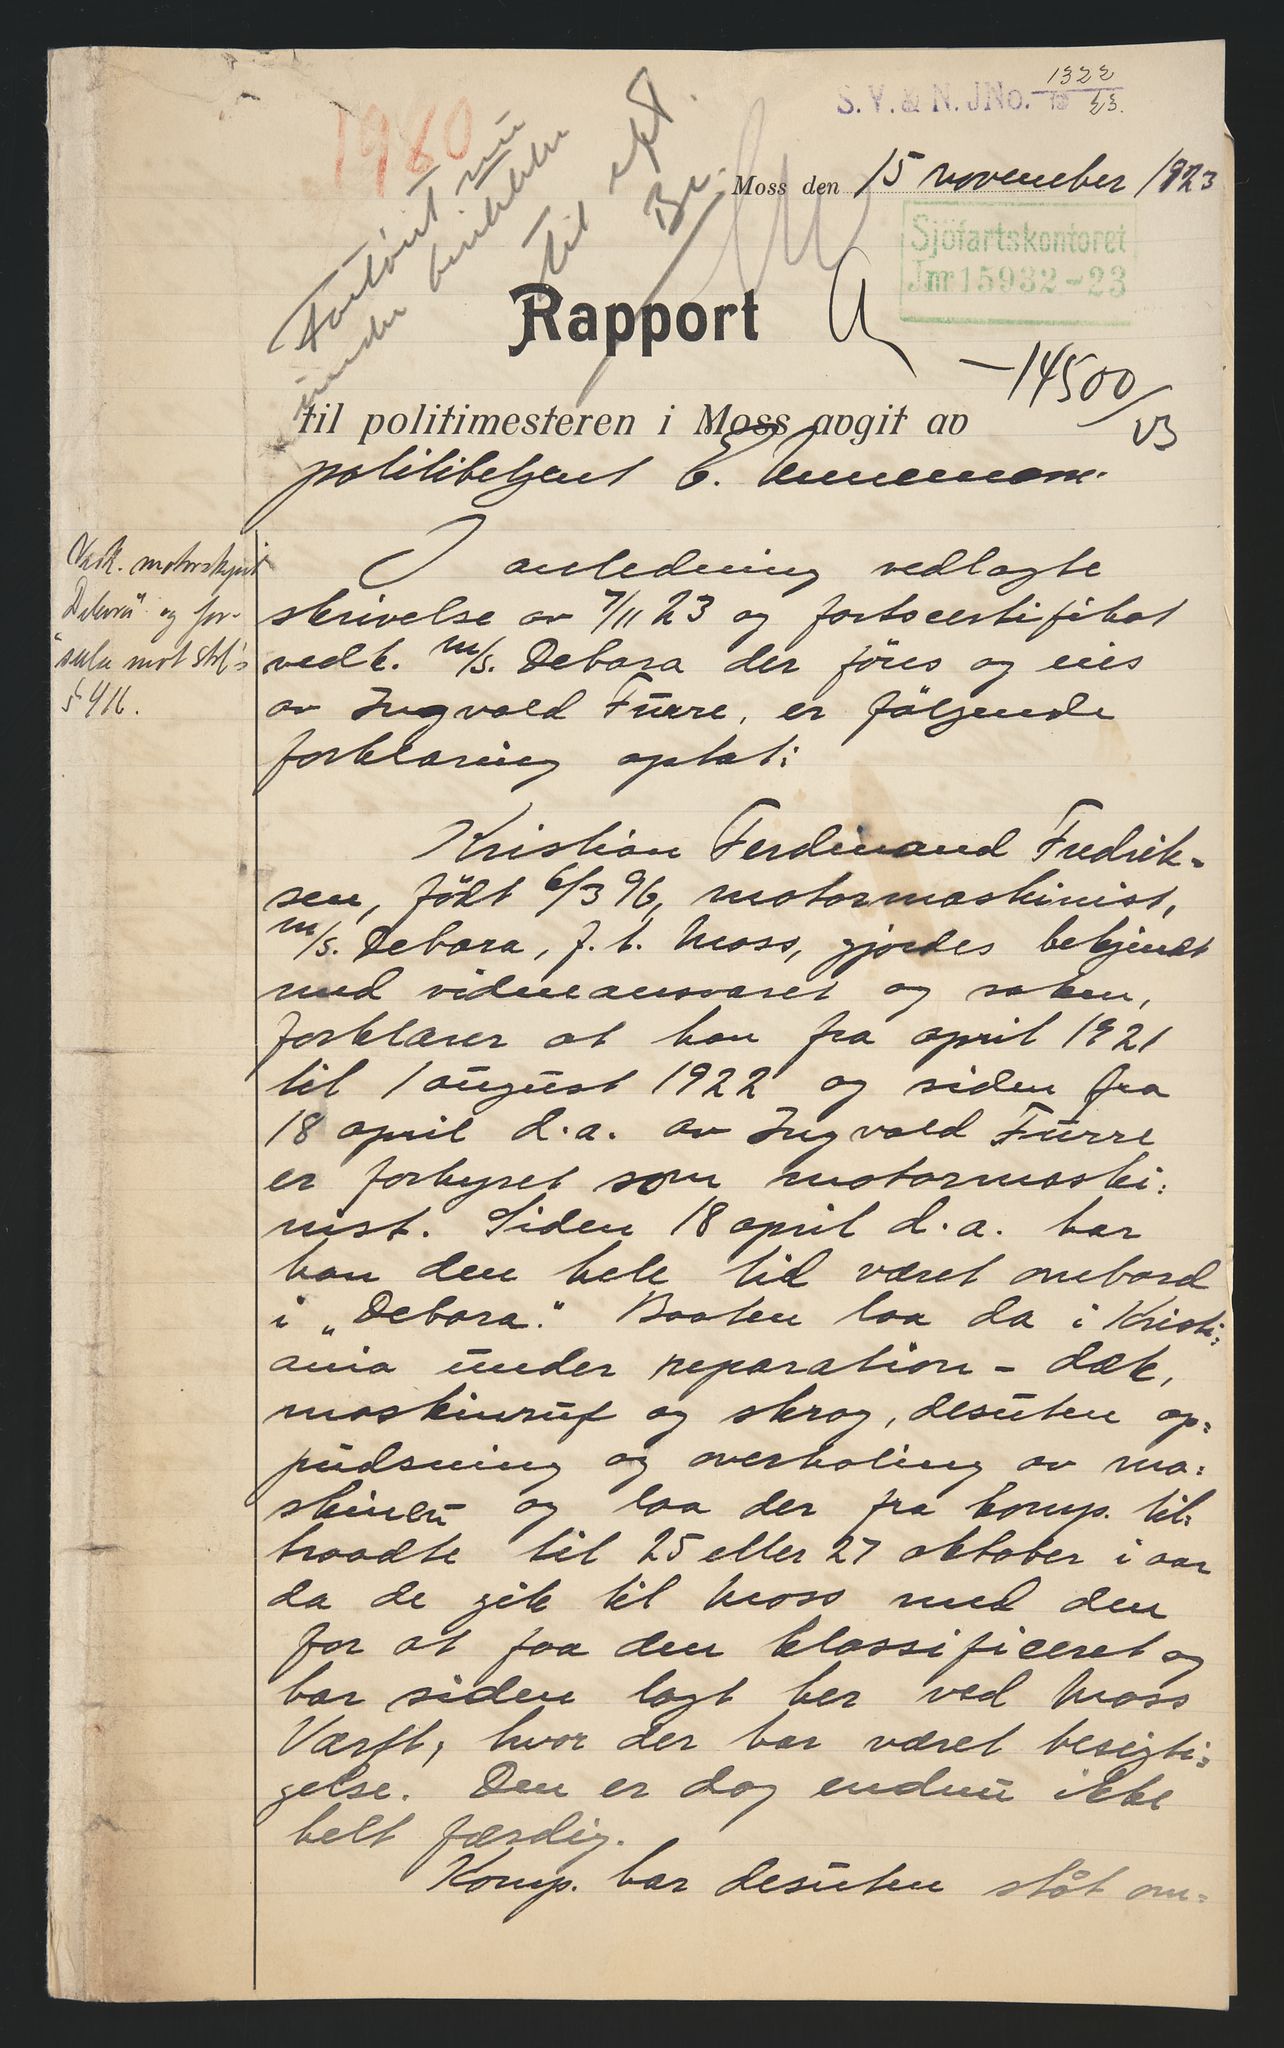 S. V. & N. JNo. 1322/19 23.
1980
Moss den 15 november 1923
Sjöfartskontoret
Jnr 15932-23
Rapport
til
- 14500/23
til politimesteren i Moss avgit av
politibetjent E.
Vedk. motorskjøit
"Debora" og for-
seelse mot strl's
§ 416.
I anledning vedlagte
skrivelse av 7/11 23 og fartscertifikat
vedk. m/s. Debora der føres og eies
av Ingvald Furre, er følgende
forklaring optat:
Kristian Ferdinand Fredrik-
sen, født 6/3 96, motormaskinist,
m/s. Debora, f. t. Moss, gjordes bekjendt
med vidneansvaret og saken,
forklarer at han fra april 1921
til 1 august 1922 og siden fra
18 april d.a. av Ingvald Furre
er forhyret som motormaski:
nist. Siden 18 april d.a. har
han den hele tid været ombord
i „Debora". Baaten laa da i Kristi:
ania under reparation - dæk,
maskinruf og skrog, desuten op:
pudsning og overhaling av ma:
skinen og laa der fra komp. til:
traadte til 25 eller 27 oktober i aar
da de gik til Moss med den
for at faa den klassificeret og
har siden lagt her ved Moss
Værft, hvor der har været besigti:
gelse. Den er dog endnu ikke
helt færdig.
Komp. har desuten støt om: